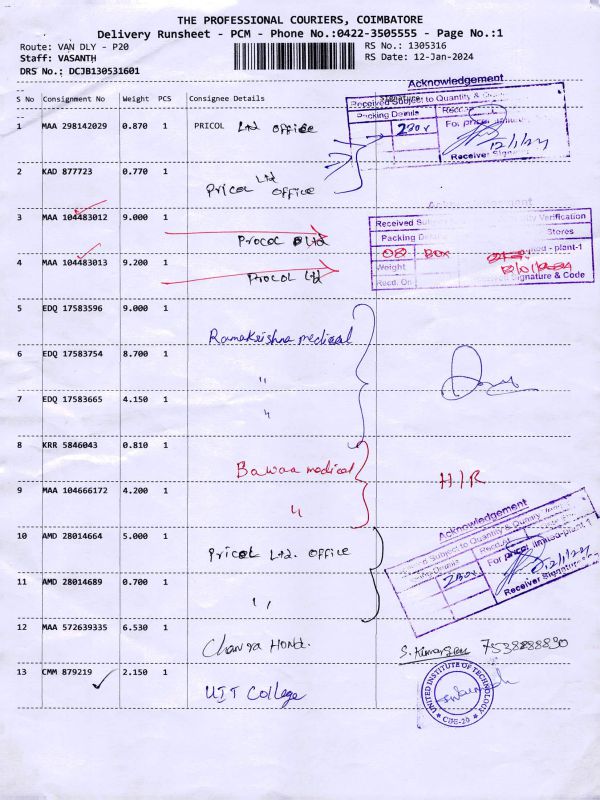 THE PROFESSIONAL COURIERS, COIMBATORE
Delivery Runsheet - PCM - Phone No.:0422-3505555 - Page No.:1
Route: VAN DLY - P20
RS No.: 1305316
Staff: VASANTH
RS Date: 12-Jan-2024
DRS No.: DCJB130531601
Acknowledgement
S No Consignment No Weight PCS Consignee Details Signature
Received Subject to Quantity &
Packing Details
1 MAA 298142029 0.870 1 PRICOL Ltd office
2 Box
For pricol limited
12/1/24
Receiver
2 KAD 877723 0.770 1 Pricol Ltd office
3 MAA 104483012 9.000 1 Procol Ltd
Received Verification
Packing Stores
02 Box - plant-1
Weight
Recd. On Signature & Code
4 MAA 104483013 9.200 1 Procol Ltd
5 EDQ 17583596 9.000 1 Ramakrishna medical
6 EDQ 17583754 8.700 1 "
7 EDQ 17583665 4.150 1 "
8 KRR 5846043 0.810 1 Bawaa medical
9 MAA 104666172 4.200 1 "
H/R
Acknowledgement
Subject to Quantity & Quality
10 AMD 28014664 5.000 1 Pricol Ltd. office
For pricol limited-plant-1
2 Box
12/1/24
Receiver Signature
11 AMD 28014689 0.700 1 "
12 MAA 572639335 6.530 1 Honda.
7538888830
13 CMM 879219 2.150 1 UIT College
UNITED INSTITUTE OF TECHNOLOGY
CBE-20